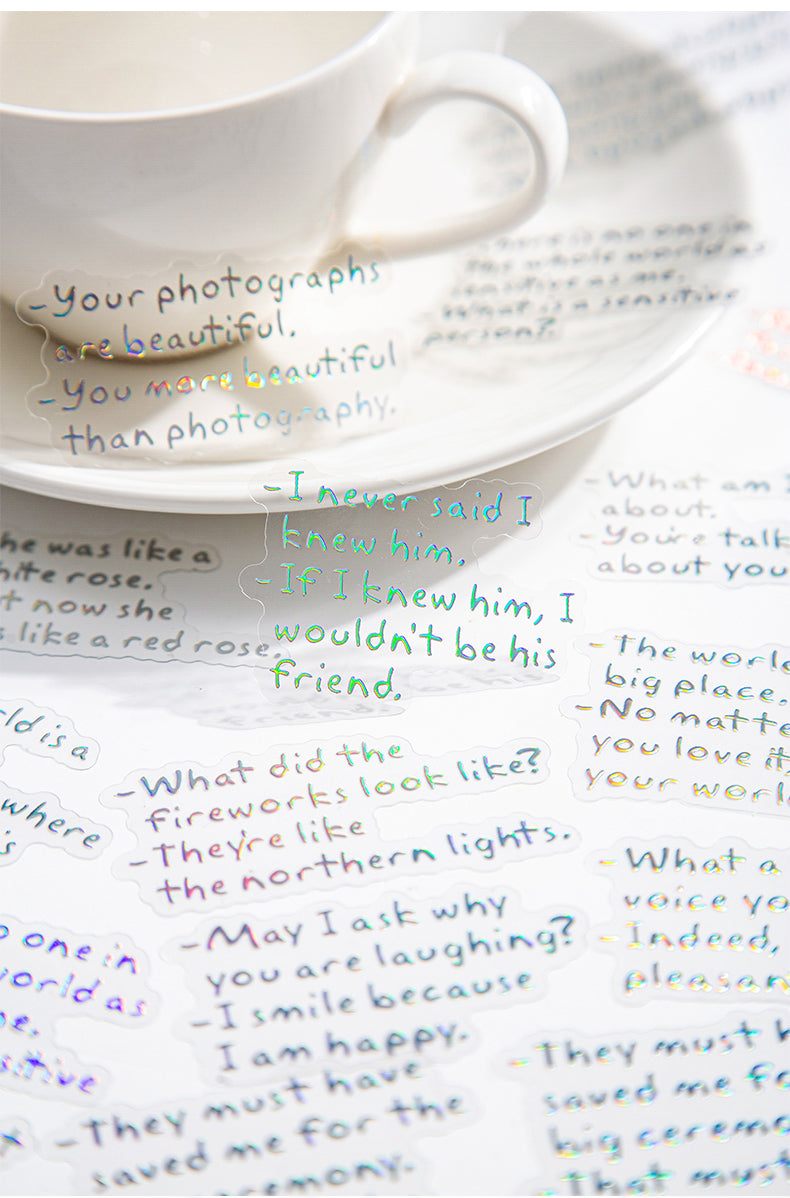 -Your photographs
are beautiful.
-You more beautiful
than photography.
There is no one in
the whole world as
sensitive as me.
-What is a sensitive
person?
-I never said I
knew him.
-If I knew him, I
wouldn't be his
friend.
-What am I
about.
-You're talk
about you
he was like a
hite rose.
t now she
s like a red rose.
-The worl
big place.
-No matte
you love it
your worl
ld is a
where
is
-What did the
fireworks look like?
-They're like
the northern lights.
-What a
voice yo
-Indeed,
pleasan
-May I ask why
you are laughing?
-I smile because
I am happy.
o one in
world as
e.
sitive
-They must have
saved me for the
emony.
-They must h
saved me fo
big ceremo
-That must